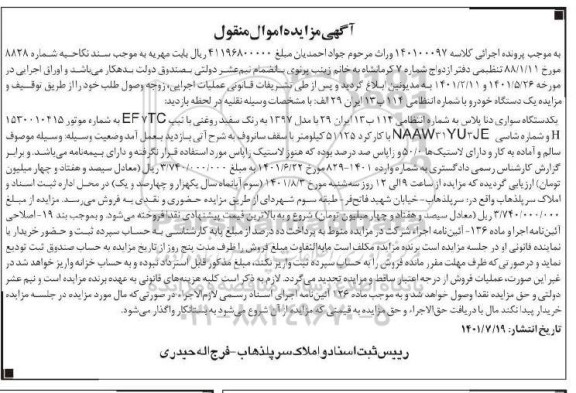 آگهی مزایده اموال منقول
به موجب پرونده اجرائی کلاسه ۱۴۰۱۰۰۰۹۷ وراث مرحوم جواد احمدیان مبلغ ۴۱۱۹۶۸۰۰۰۰۰ ریال بابت مهریه به موجب سند نکاحیه شماره ۸۸۲۸
مورخ ۸۸/۱/۱۱ تنظیمی دفتر ازدواج شماره ۷ کرمانشاه به خانم زینب پرنوی بانضمام نیم عشر دولتی بصندوق دولت بدهکار می‌باشد و اوراق اجرایی در
مورخه ۱۴۰۱/۵/۲۶ و ۱۴۰۱/۲/۱۱ به مدیونین ابلاغ گردید و پس از طی تشریفات قانونی عملیات اجرایی، زوجه وصول طلب خود را از طریق توقیف و
مزایده یک دستگاه خودرو با شماره انتظامی ۱۱۴ ب ۱۳ ایران ۲۹ الف: با مشخصات وسیله نقلیه در لحظه بازدید:
یکدستگاه سواری دنا پلاس به شماره انتظامی ۱۱۴ ب ۱۳ ایران ۲۹ با مدل ۱۳۹۷ به رنگ سفید روغنی با تیپ EF۷TC به شماره موتور ۱۵۳۰۰۱۰۴۱۵
H و شماره شاسی NAAW۳۱YU۳JE با کار کرد ۵۱۱۲۵ کیلومتر با سقف سانروف به شرح آتی بازدید بعمل آمد وضعیت وسیله: وسیله موصوف
سالم و آماده به کار و دارای لاستیک‌ها ۵۰/۰ و زاپاس صد درصد بوده که هنوز لاستیک زاپاس مورد استفاده قرار نگرفته و دارای بیمه‌نامه می‌باشد. و برابر
گزارش کارشناس رسمی دادگستری به شماره وارده ۸۲۹-۱۴۰۱ مورخ ۱۴۰۱/۶/۲۲ به مبلغ ۳/۷۴۰/۰۰۰/۰۰۰ ریال (معادل سیصد و هفتاد و چهار میلیون
تومان) ارزیابی گردیده که مزایده از ساعت ۹ الی ۱۲ روز سه‌شنبه مورخ ۱۴۰۱/۸/۳ (سوم آبانماه سال یکهزار و چهارصد و یک) در محل اداره ثبت اسناد و
املاک سرپلذهاب واقع در: سرپلذهاب- خیابان شهید فاتح‌فر طبقه سوم شهرداری از طریق مزایده حضوری و نقدی به فروش می‌رسد. مزایده از مبلغ
۳/۷۴۰/۰۰۰/۰۰۰ ریال (معادل سیصد و هفتاد و چهار میلیون تومان) شروع و به بالاترین قیمت پیشنهادی نقدا فروخته می‌شود. و بموجب بند ۱۹-اصلاحی
آئین‌نامه اجرا و ماده ۱۳۶- آئین‌نامه اجراء شرکت در مزایده منوط به پرداخت ده درصد از مبلغ پایه کارشناسی به حساب سپرده ثبت و حضور خریدار یا
نماینده قانونی او در جلسه مزایده است برنده مزایده مکلف است مابه‌التفاوت مبلغ فروش را ظرف مدت پنج روز از تاریخ مزایده به حساب صندوق ثبت تودیع
نماید و در صورتی که ظرف مهلت مقرر مانده فروش را به حساب سپرده ثبت واریز نکند، مبلغ مذکور قابل استرداد نبوده و به حساب خزانه واریز خواهد شد در
غیر این صورت، عملیات فروش از درجه اعتبار ساقط و مزایده تجدید می‌گردد. لازم به ذکر است کلیه هزینه‌های قانونی به عهده برنده مزایده است و نیم عشر
دولتی و حق مزایده نقدا وصول خواهد شد و به موجب ماده ۱۲۶ آئین‌نامه اجرای اسناد رسمی لازم‌الاجراء در صورتی که مال مورد مزایده در جلسه مزایده
خریدار پیدا نکند مال با دریافت حق‌الاجراء و حق مزایده به قیمتی که مزایده از آن شروع می‌شود به بستانکار واگذار می‌شود.
تاریخ انتشار: ۱۴۰۱/۷/۱۹
رییس ثبت اسناد و املاک سرپلذهاب- فرج اله حیدری
۰۲۱-۸۸۳۴۹۶۷۰-۵